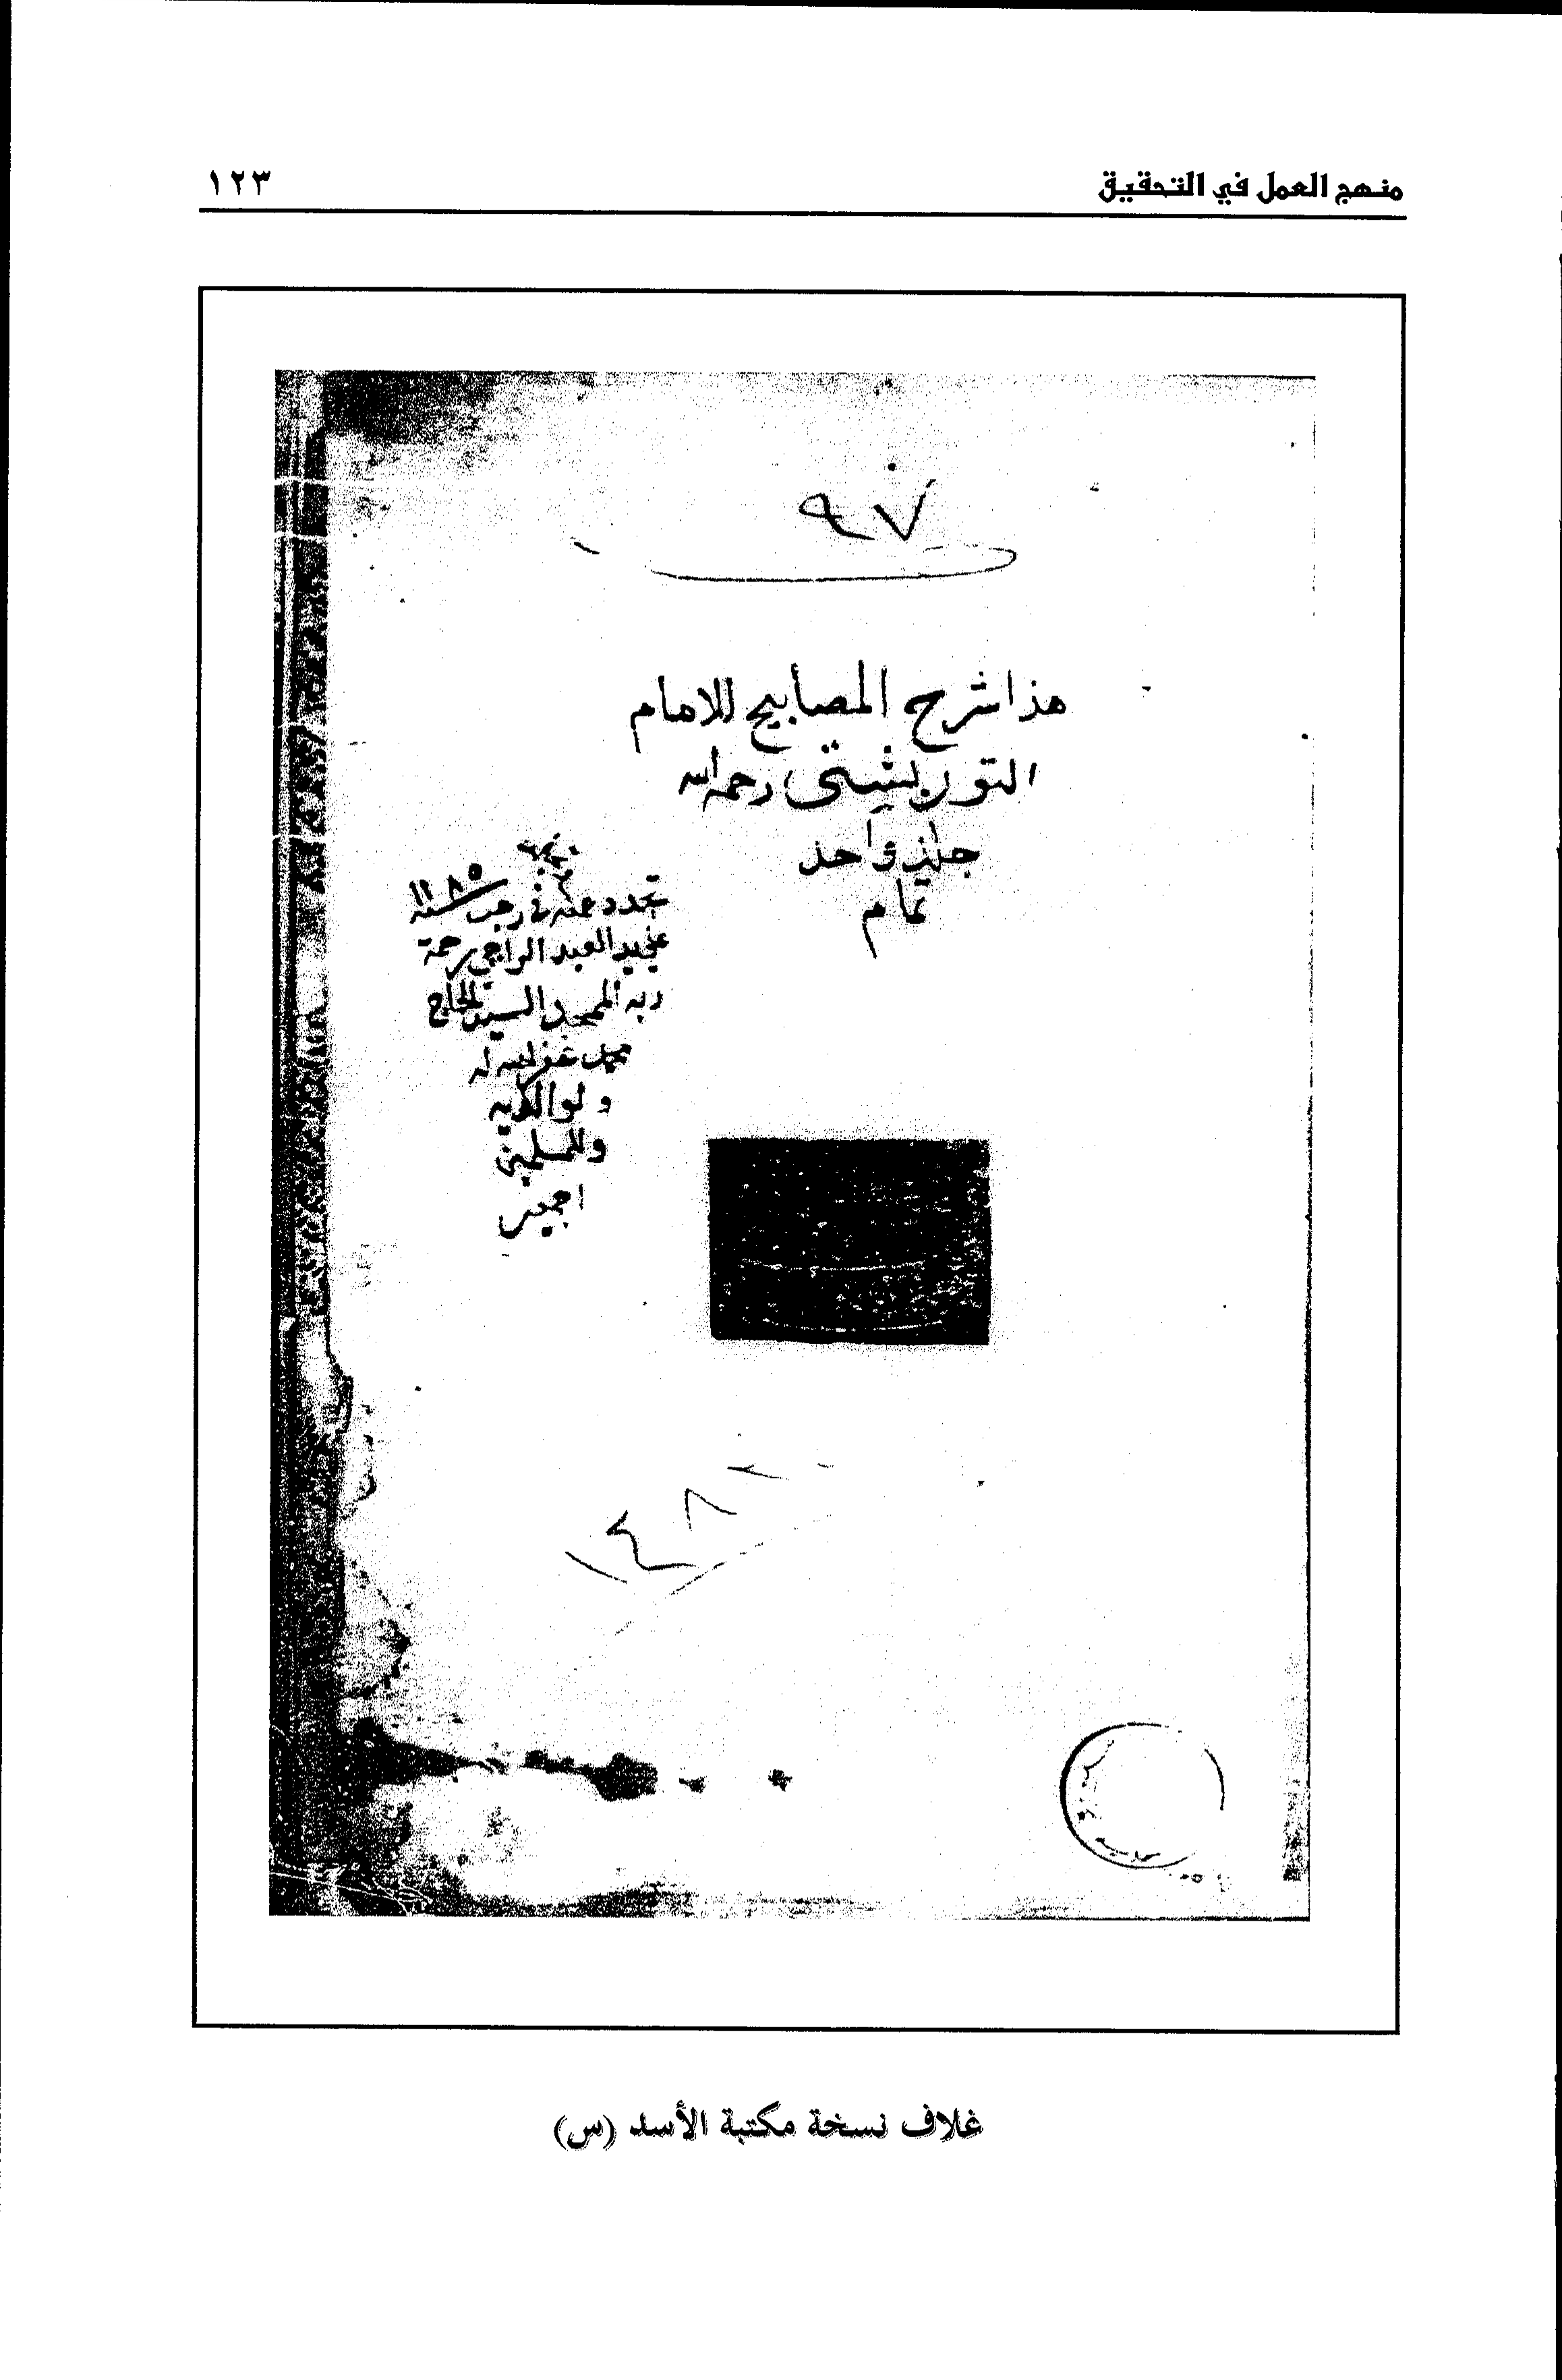 منهج العمل في التحقيق
١٢٣
٩٧
هذا شرح المصابيح للامام
التوربشتي رحمه الله
جلد واحد
تمام
تجدد في رجب سنة ١١٨٥
العبد الراجي رحمة
ربه السيد الحاج
محمد غفر الله له
ولوالديه
وللمسلمين
اجمعين
١٤٨
غلاف نسخة مكتبة الأسد (س)